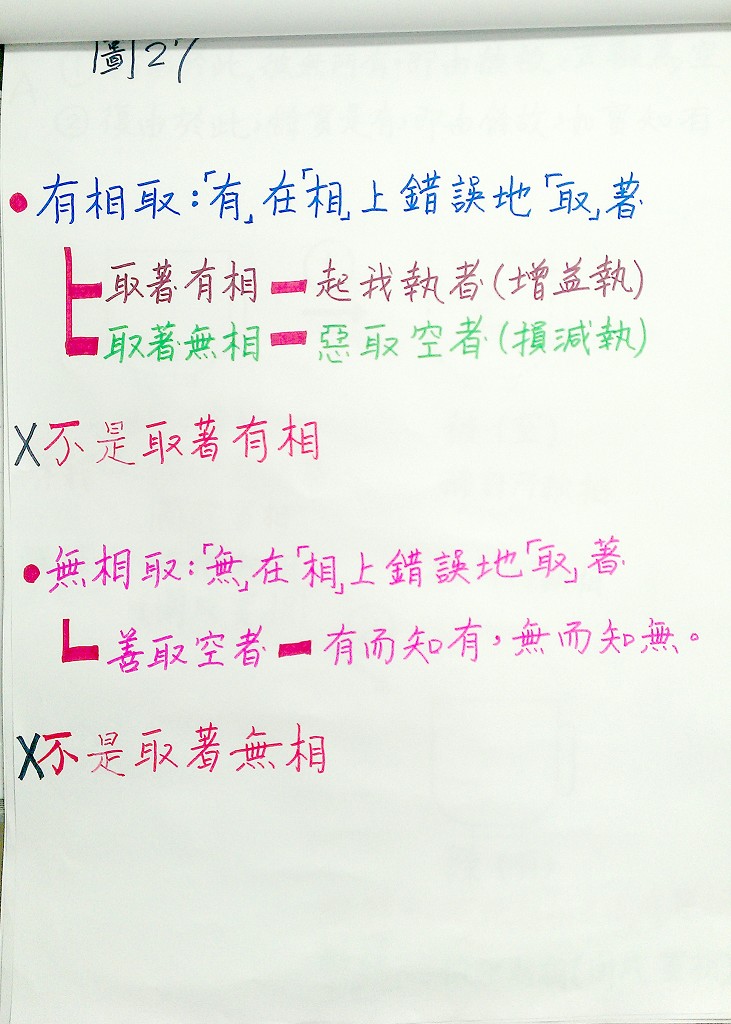 圖27
•有相取：「有」在「相」上錯誤地「取」著
取著有相－起我執者(增益執)
取著無相－惡取空者(損減執)
X不是取著有相
•無相取：「無」在「相」上錯誤地「取」著
善取空者－有而知有，無而知無。
X不是取著無相